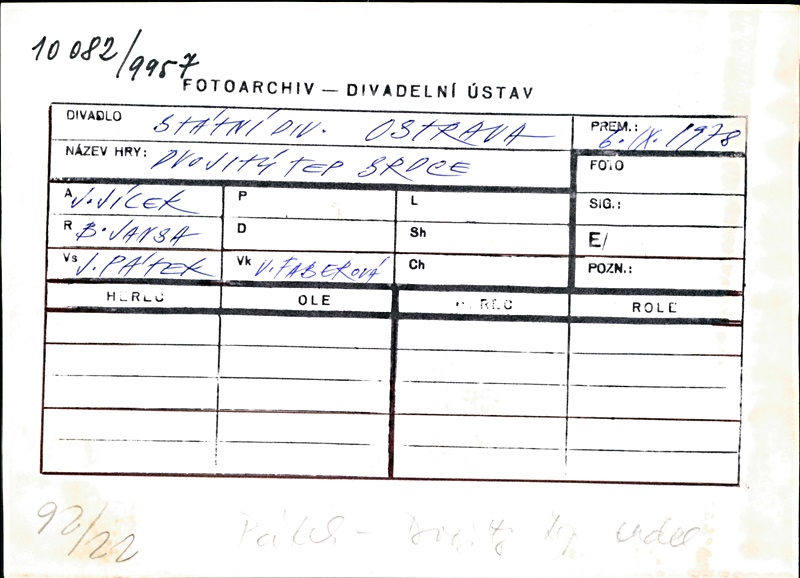 10 082/9957
FOTOARCHIV — DIVADELNÍ ÚSTAV
DIVADLO STÁTNÍ DIV. OSTRAVA PREM.: 6. IX. 1978
NÁZEV HRY: DVOJITÝ TEP SRDCE FOTO
A J. JÍLEK P L SIG.:
R B. JANSA D Sh E/
Vs J. PÁTEK Vk V. FABEROVÁ Ch POZN.:
HEREC OLE EREC ROLE
92/22